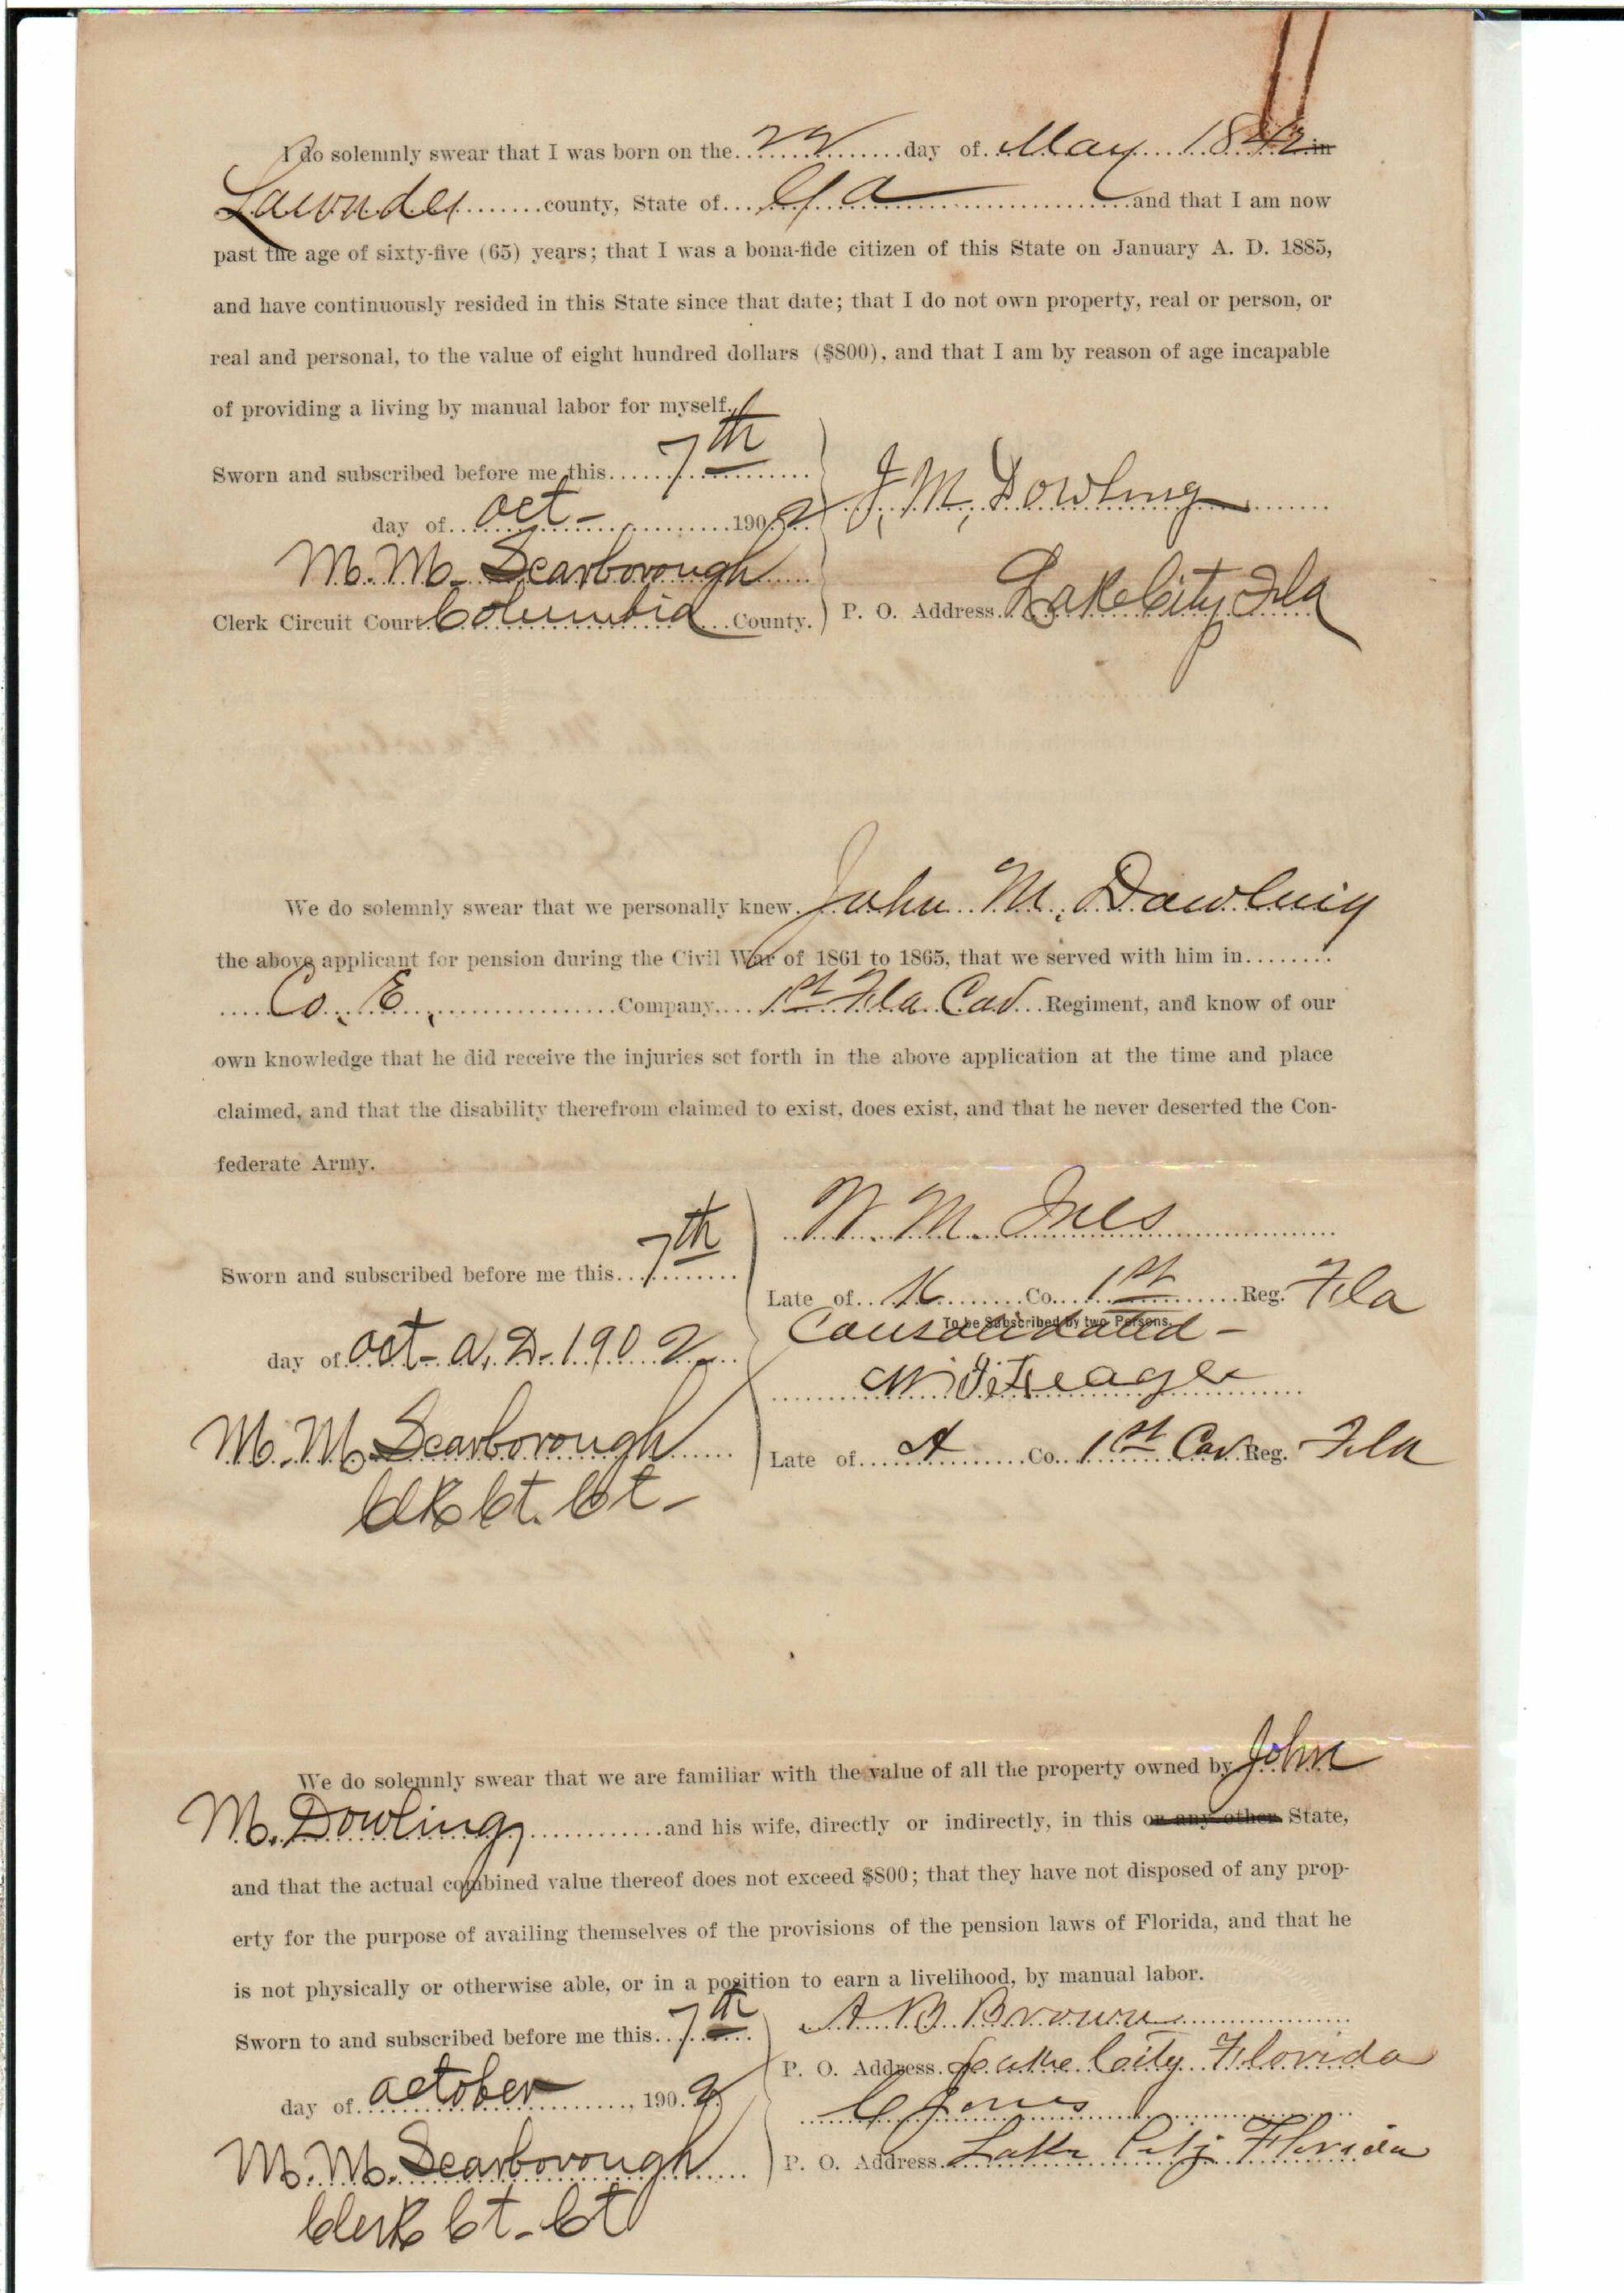 I do solemnly swear that I was born on the 22 day of May 1842 in
Lawndes county, State of Ga and that I am now
past the age of sixty-five (65) years; that I was a bona-fide citizen of this State on January A. D. 1885,
and have continuously resided in this State since that date; that I do not own property, real or person, or
real and personal, to the value of eight hundred dollars ($800), and that I am by reason of age incapable
of providing a living by manual labor for myself.
Sworn and subscribed before me this 7th
day of Oct - 1902
J, M, Dowling
M. M. Scarborough
Clerk Circuit Court Columbia County.
P. O. Address. Lake City Fla
We do solemnly swear that we personally knew John M. Dawling
the above applicant for pension during the Civil War of 1861 to 1865, that we served with him in
Co. E, Company, 1st Fla Cav Regiment, and know of our
own knowledge that he did receive the injuries set forth in the above application at the time and place
claimed, and that the disability therefrom claimed to exist, does exist, and that he never deserted the Con-
federate Army.
W. M. Ives
Sworn and subscribed before me this 7th
Late of K Co. 1st Reg. Fla
To be Subscribed by two Persons.
Consolidated -
day of Oct - A. D. 1902
M. M. Scarborough
Clk Ct. Ct -
Late of A Co. 1st Cav Reg. Fla
We do solemnly swear that we are familiar with the value of all the property owned by John
M. Dowling, and his wife, directly or indirectly, in this or any other State,
and that the actual combined value thereof does not exceed $800; that they have not disposed of any prop-
erty for the purpose of availing themselves of the provisions of the pension laws of Florida, and that he
is not physically or otherwise able, or in a position to earn a livelihood, by manual labor.
Sworn to and subscribed before me this 7th
A B Brown
P. O. Address. Lake City Florida
day of October, 1902
C Jones
M. M. Scarborough
P. O. Address. Lake City Florida
Clerk Ct - Ct